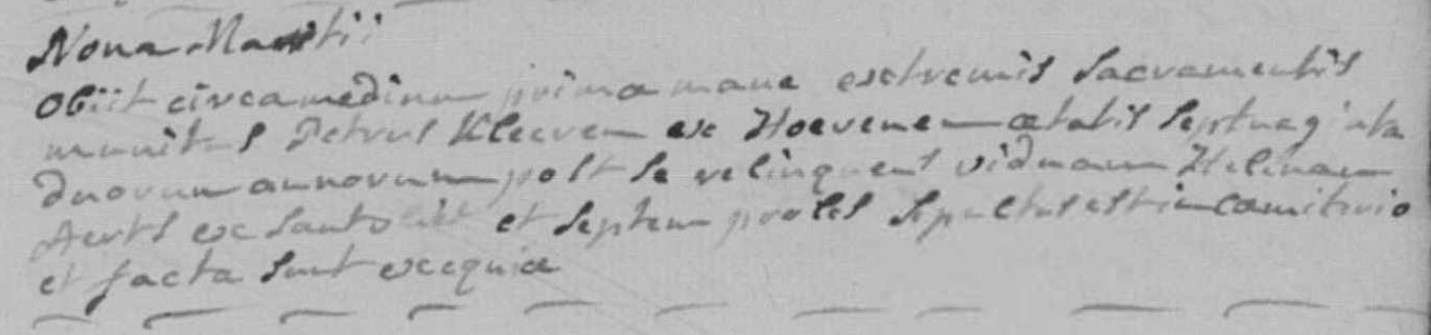 Nona Martii
obiit circa medium prima mane extremis sacramentis
munitus Petrus Kleeven ex Hoevenen ætatis septuaginta
duorum annorum post se relinquens viduam Helenam
Aerts ex et septem proles sepultus est in cæmiterio
et facta sunt exequiæ